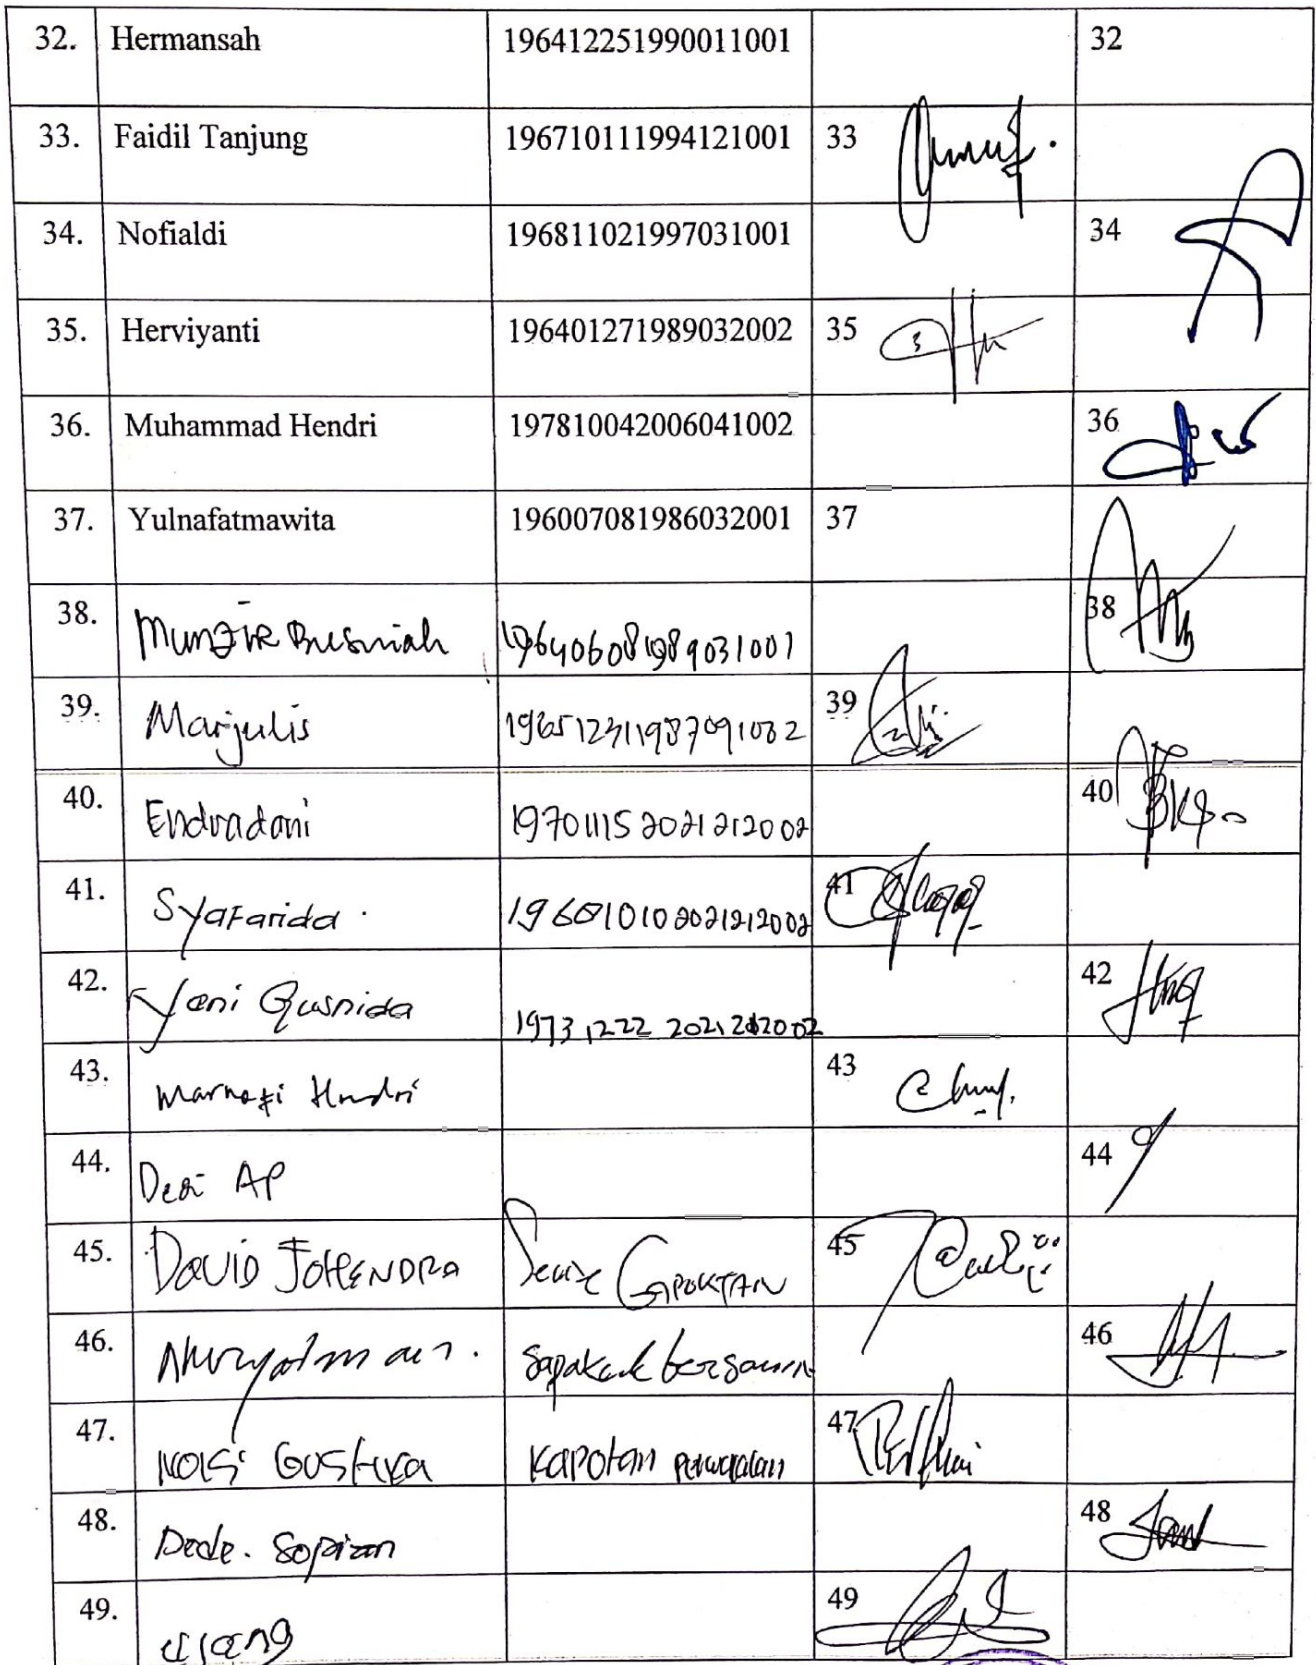 32. Hermansah 196412251990011001 32
33. Faidil Tanjung 196710111994121001 33
34. Nofialdi 196811021997031001 34
35. Herviyanti 196401271989032002 35
36. Muhammad Hendri 197810042006041002 36
37. Yulnafatmawita 196007081986032001 37
38. Munzir Busniah 196406081989031001 38
39. Marjulis 196512311987091002 39
40. Endradani 197011152021212002 40
41. Syafarida. 41
42. Yeni Gusnida 197312222021212002 42
43. Hendri 43
44. AP 44
45. DAVID JOHENDRA GAPOKTAN 45
46. 46
47. Gustika 47
48. Dede. Sopian 48
49. 49